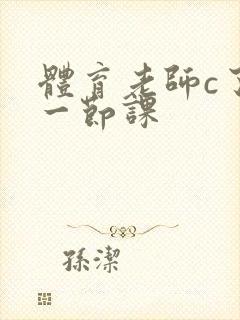 體育老師c了
一節課
孫潔